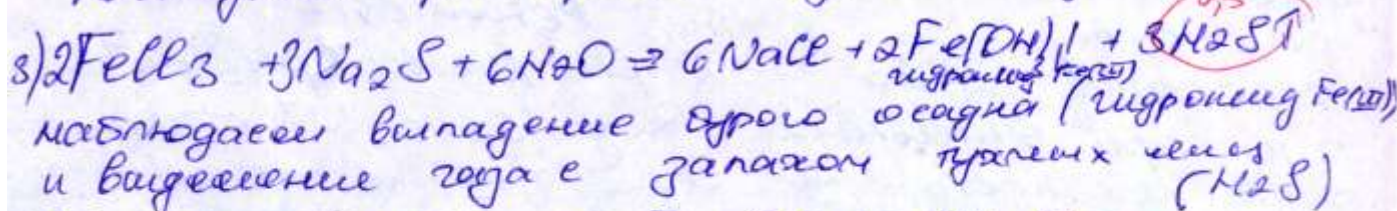 3) 2FeCl3 + 3Na2S + 6H2O = 6NaCl + 2Fe(OH)3↓ + 3H2S↑
гидроксид Fe(III)
наблюдаем выпадение бурого осадка (гидроксид Fe(III))
и выделение газа с запахом тухлых яиц
(H2S)